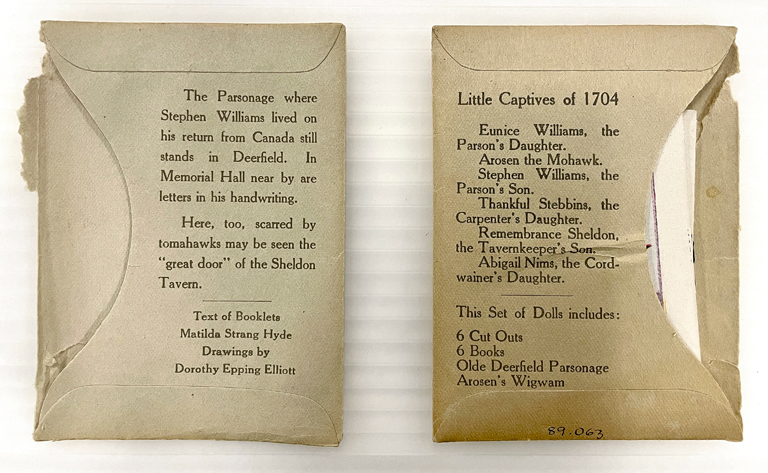 The Parsonage where
Stephen Williams lived on
his return from Canada still
stands in Deerfield. In
Memorial Hall near by are
letters in his handwriting.
Here, too, scarred by
tomahawks may be seen the
"great door" of the Sheldon
Tavern.
Text of Booklets
Matilda Strang Hyde
Drawings by
Dorothy Epping Elliott
Little Captives of 1704
Eunice Williams, the
Parson's Daughter.
Arosen the Mohawk.
Stephen Williams, the
Parson's Son.
Thankful Stebbins, the
Carpenter's Daughter.
Remembrance Sheldon,
the Tavernkeeper's Son.
Abigail Nims, the Cord-
wainer's Daughter.
This Set of Dolls includes:
6 Cut Outs
6 Books
Olde Deerfield Parsonage
Arosen's Wigwam
89.063